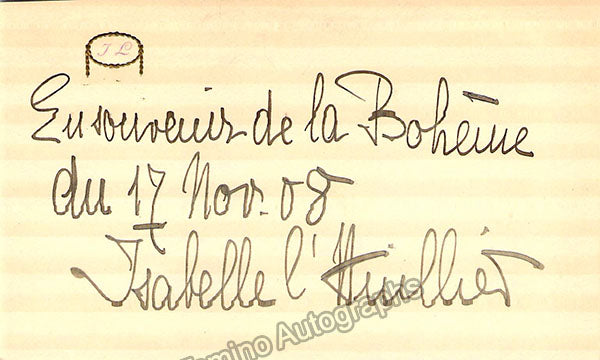 I L
En souvenir de la Bohême
du 17 Nov. 08
Isabelle l'Huillier
Tamino Autographs